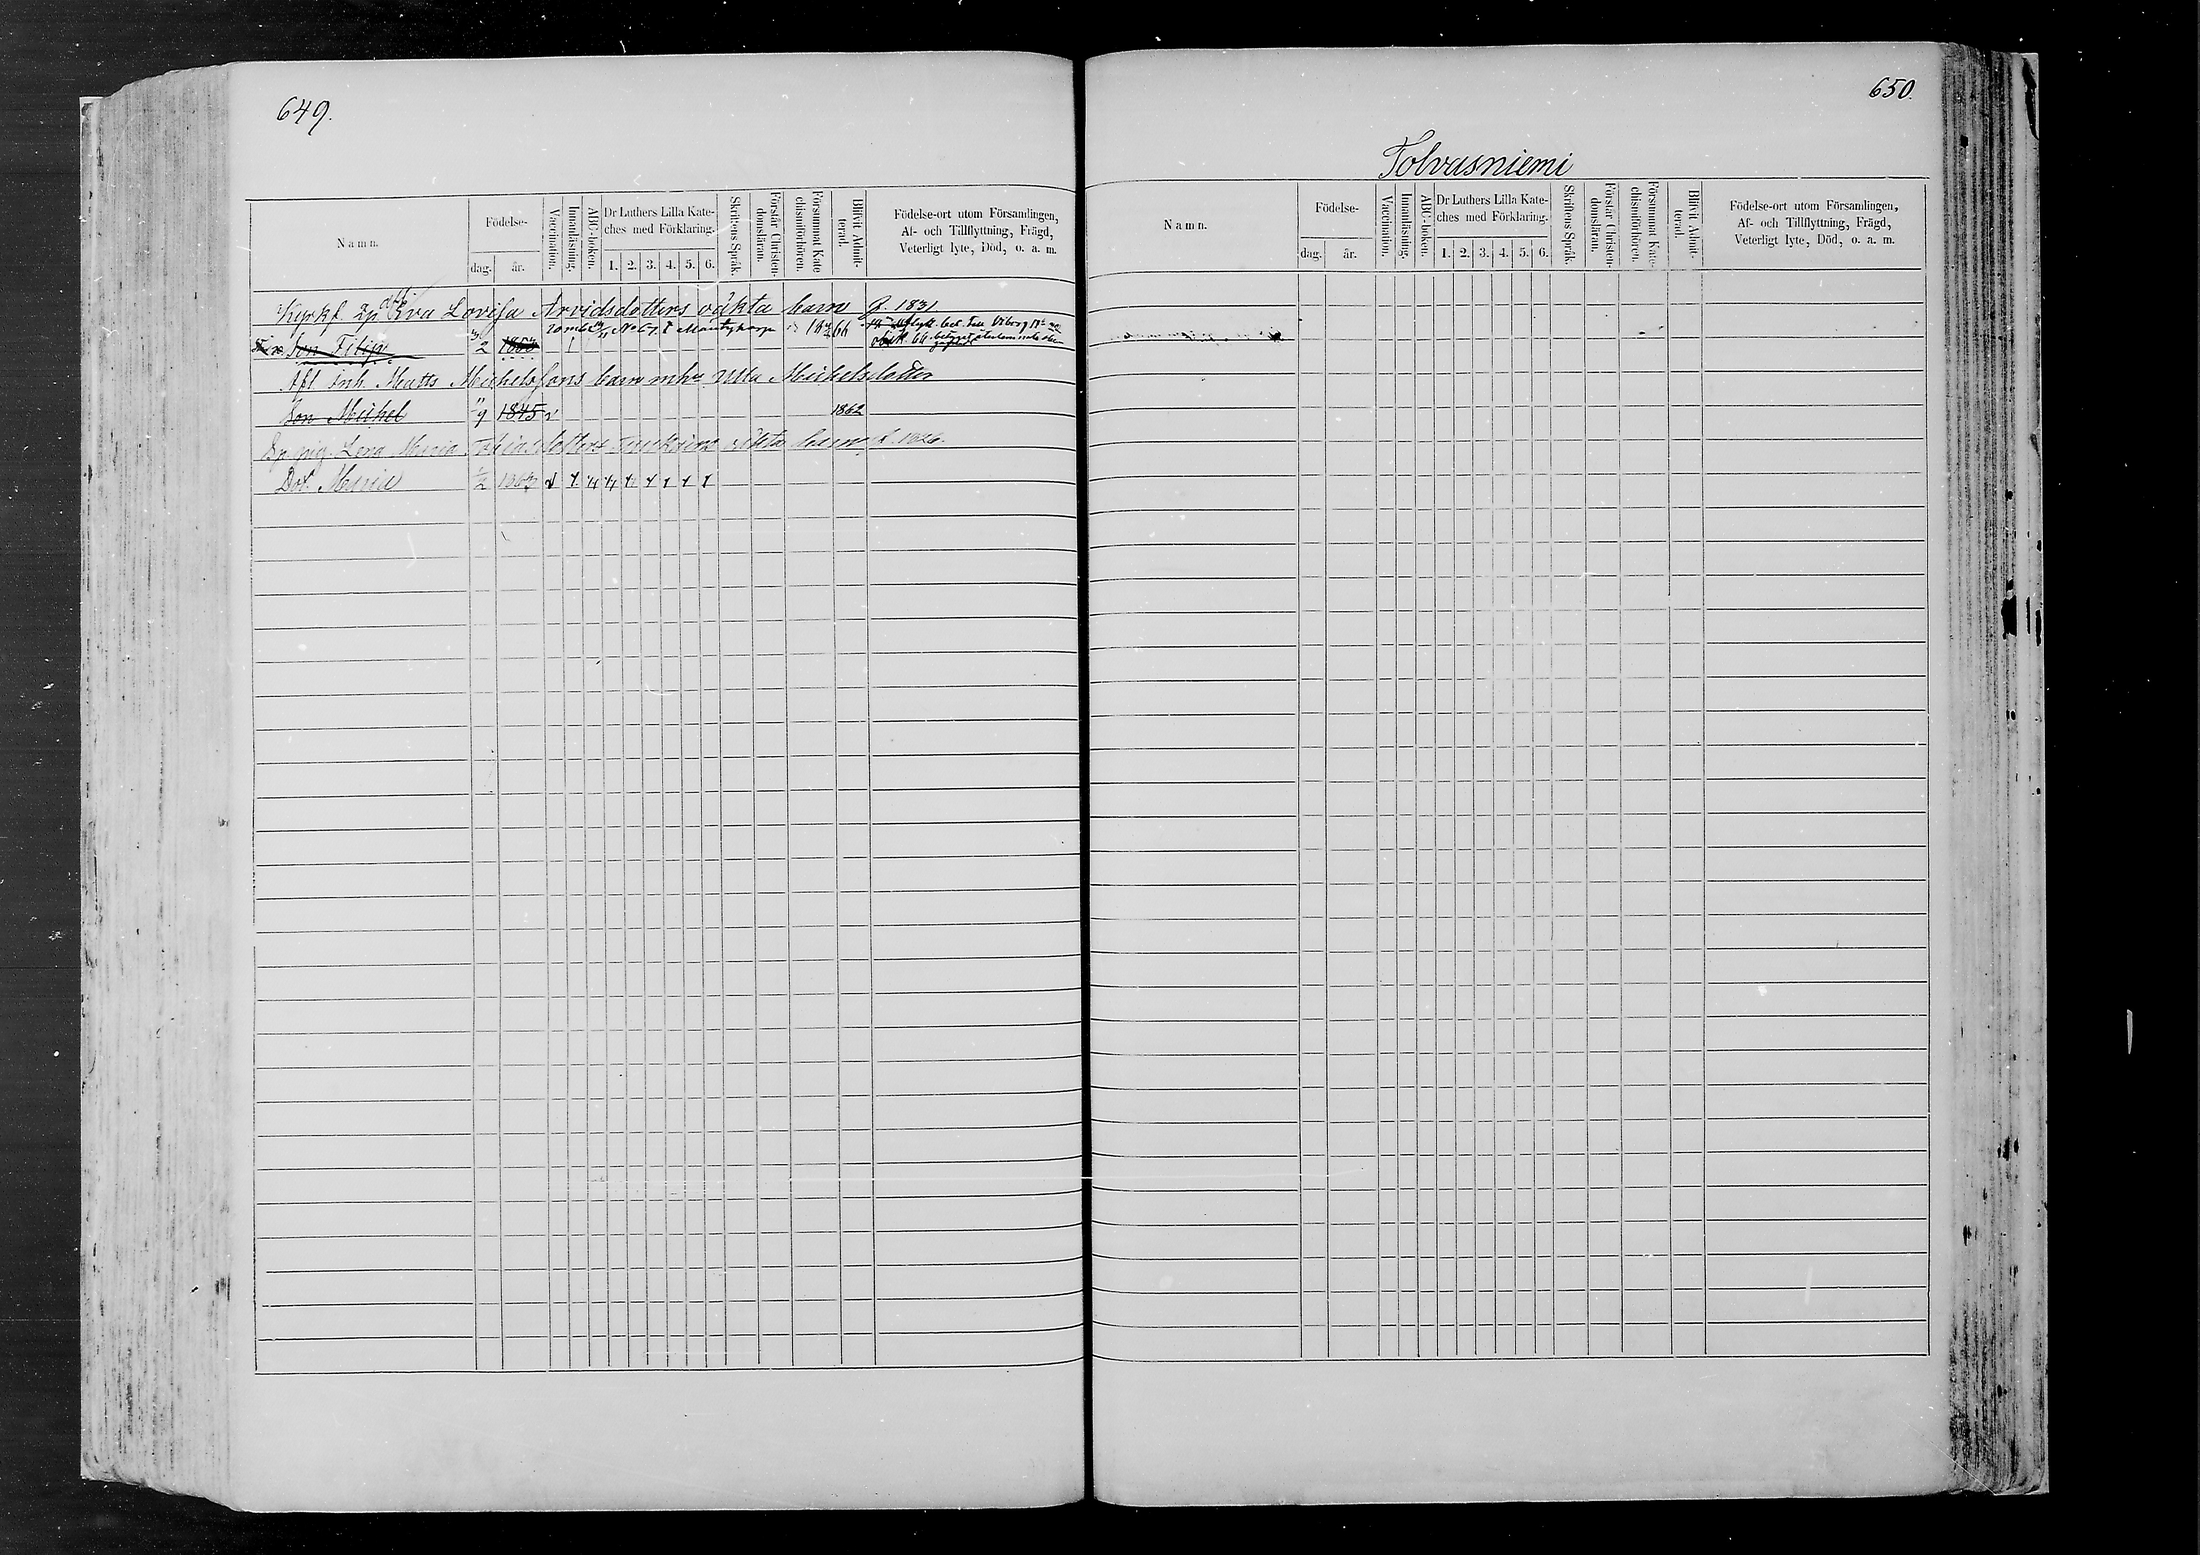 649.
Namn.
Födelse-
dag.
år.
Vaccination.
Innanläsning.
ABC-boken.
Dr Luthers Lilla Kate-
ches med Förklaring.
1. 2. 3. 4. 5. 6.
Skriftens Språk.
Förstår Christen-
domsläran.
Försummat Kate
chismiförhören.
Blifvit Admit-
terad.
Födelse-ort utom Församlingen,
Af- och Tillflyttning, Frägd,
Veterligt lyte, Död, o. a. m.
Kyrkf. Eva Lovisa Arvidsdotters oäkta barn 1831
Son Filip 2
Afl. Inh. Matts Michelssons barn m hu Michelsdotter
Son Michel 9 1845 1862
Lena Maria oäkta barn
Dot. Maria 1/2
650.
Tolvasniemi
Namn.
Födelse-
dag.
år.
Vaccination.
Innanläsning.
ABC-boken.
Dr Luthers Lilla Kate-
ches med Förklaring.
1. 2. 3. 4. 5. 6.
Skriftens Språk.
Förstår Christen-
domsläran.
Försummat Kate-
chismiförhören.
Blifvit Admit-
terad.
Födelse-ort utom Församlingen,
Af- och Tillflyttning, Frägd,
Veterligt lyte, Död, o. a. m.